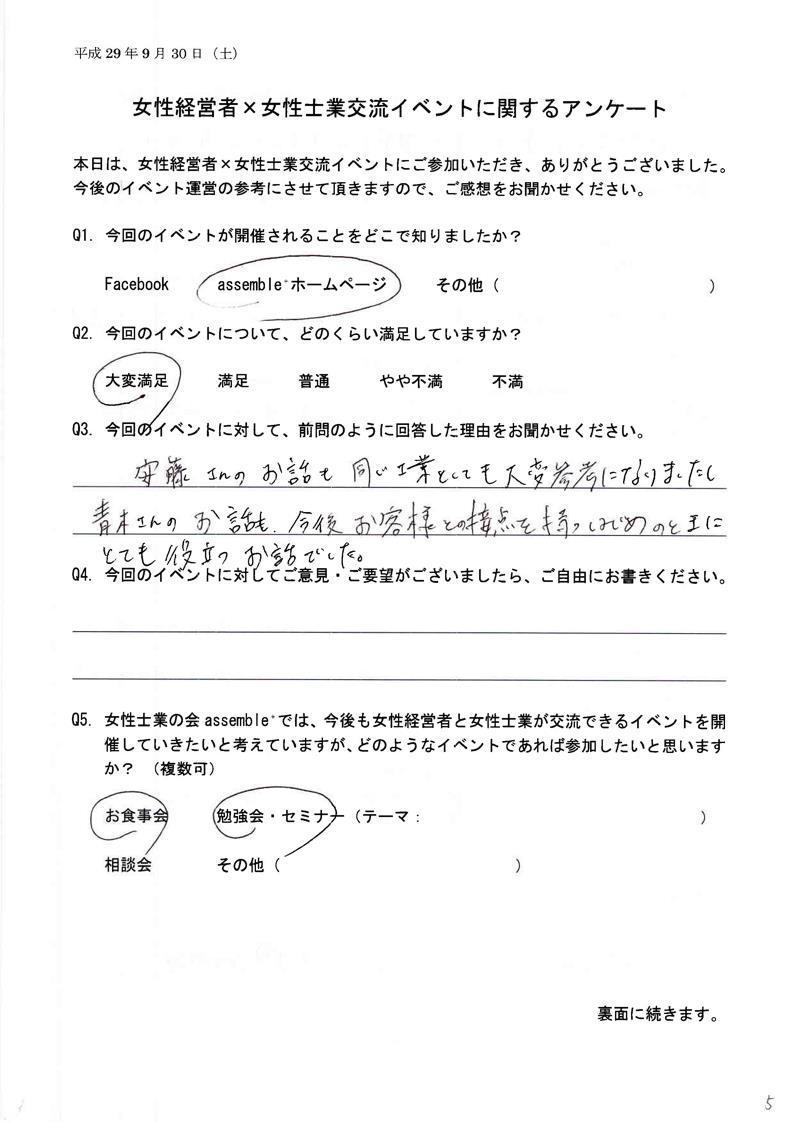 平成 29 年 9 月 30 日（土）
女性経営者×女性士業交流イベントに関するアンケート
本日は、女性経営者×女性士業交流イベントにご参加いただき、ありがとうございました。
今後のイベント運営の参考にさせて頂きますので、ご感想をお聞かせください。
Q1. 今回のイベントが開催されることをどこで知りましたか？
Facebook assemble⁺ホームページ その他（ ）
Q2. 今回のイベントについて、どのくらい満足していますか？
大変満足 満足 普通 やや不満 不満
Q3. 今回のイベントに対して、前問のように回答した理由をお聞かせください。
安藤さんのお話も同じ士業としても大変参考になりましたし
青木さんのお話も、今後お客様との接点を持つはじめのときに
とても役立つお話でした。
Q4. 今回のイベントに対してご意見・ご要望がございましたら、ご自由にお書きください。
Q5. 女性士業の会 assemble⁺では、今後も女性経営者と女性士業が交流できるイベントを開
催していきたいと考えていますが、どのようなイベントであれば参加したいと思います
か？ （複数可）
お食事会 勉強会・セミナー（テーマ： ）
相談会 その他（ ）
裏面に続きます。
5